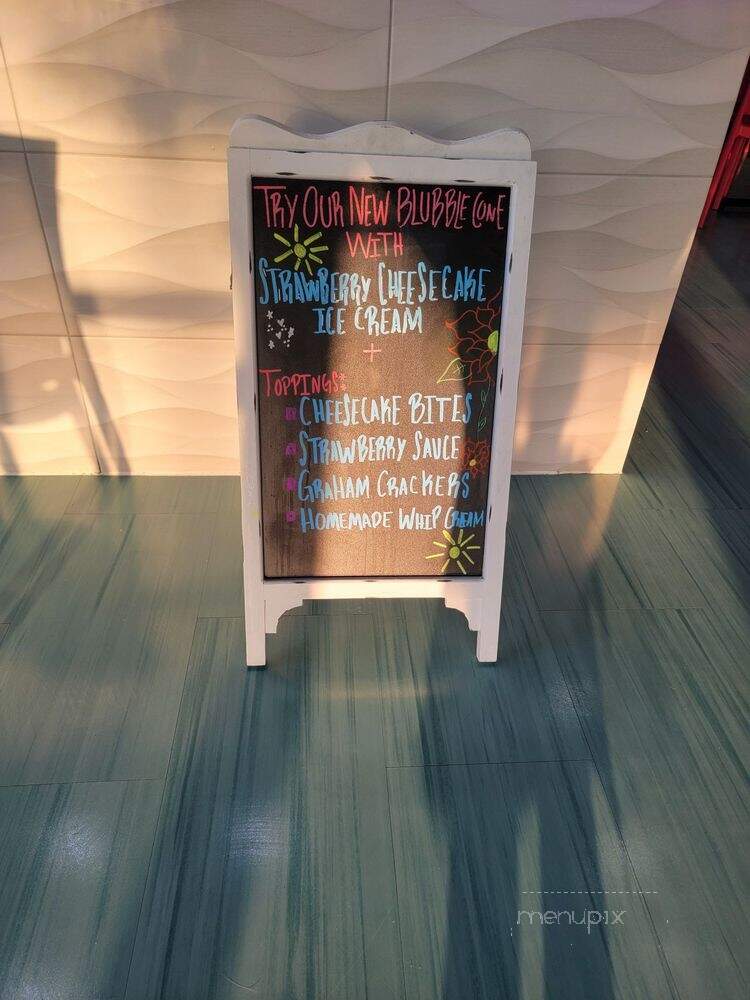 TRY OUR NEW BLUBBLE CONE
WITH
STRAWBERRY CHEESECAKE
ICE CREAM
+
TOPPINGS:
CHEESECAKE BITES
STRAWBERRY SAUCE
GRAHAM CRACKERS
HOMEMADE WHIP CREAM
menupix